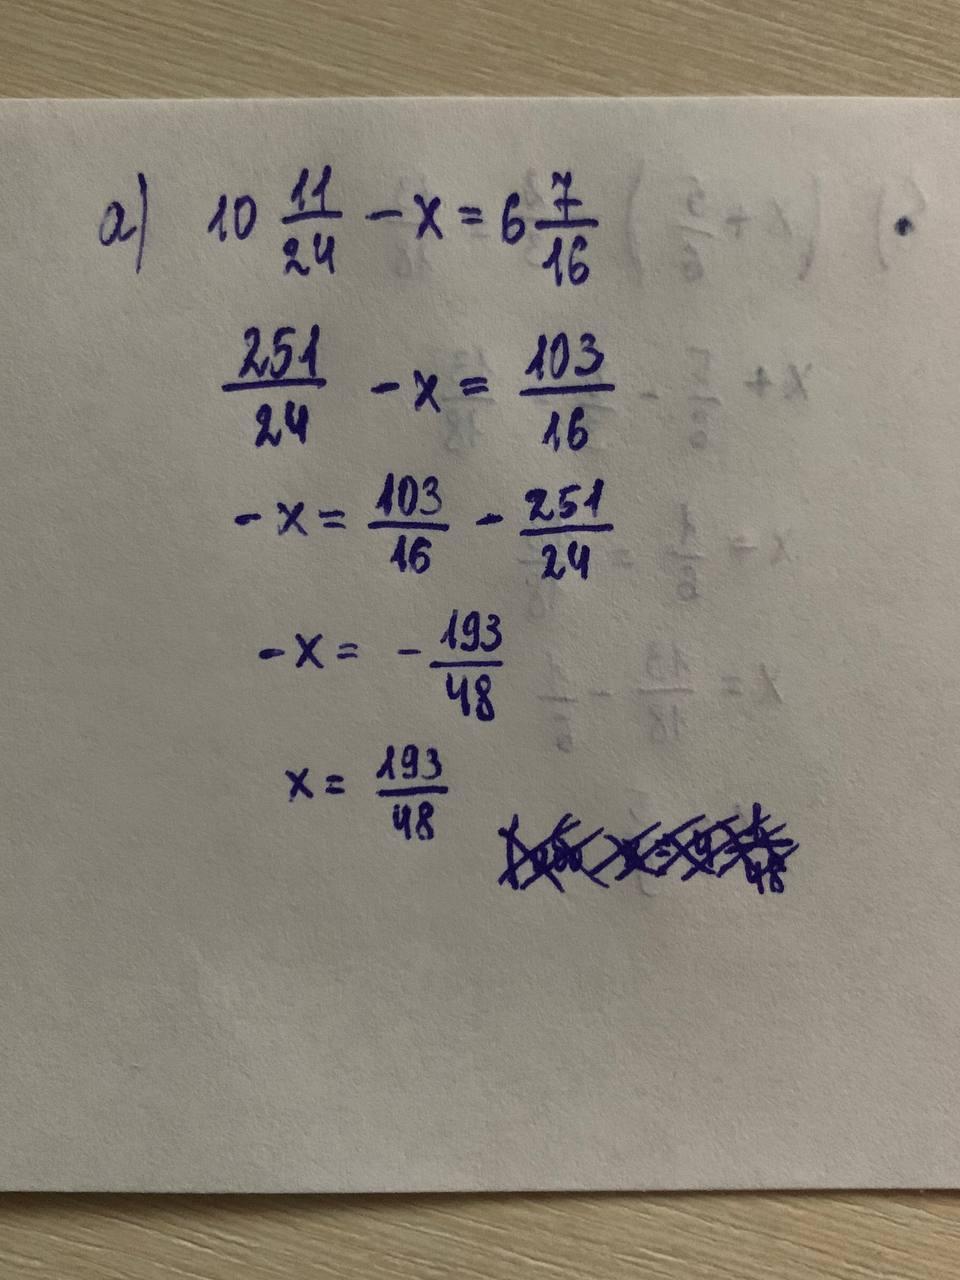 а) 10 11/24 - x = 6 7/16
251/24 - x = 103/16
- x = 103/16 - 251/24
- x = - 193/48
x = 193/48